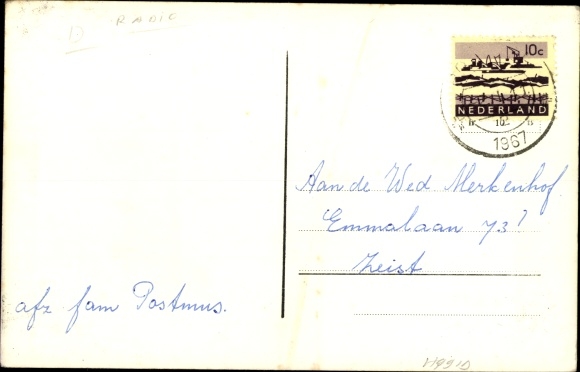 D RADIO
10c
NEDERLAND
1967
Aan de Wed Merkenhof.
Emmalaan 73
Zeist
afz fam Postmus.